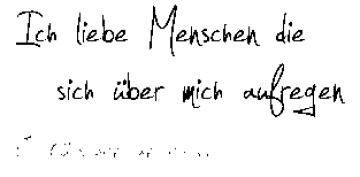 Ich liebe Menschen die
sich über mich aufregen